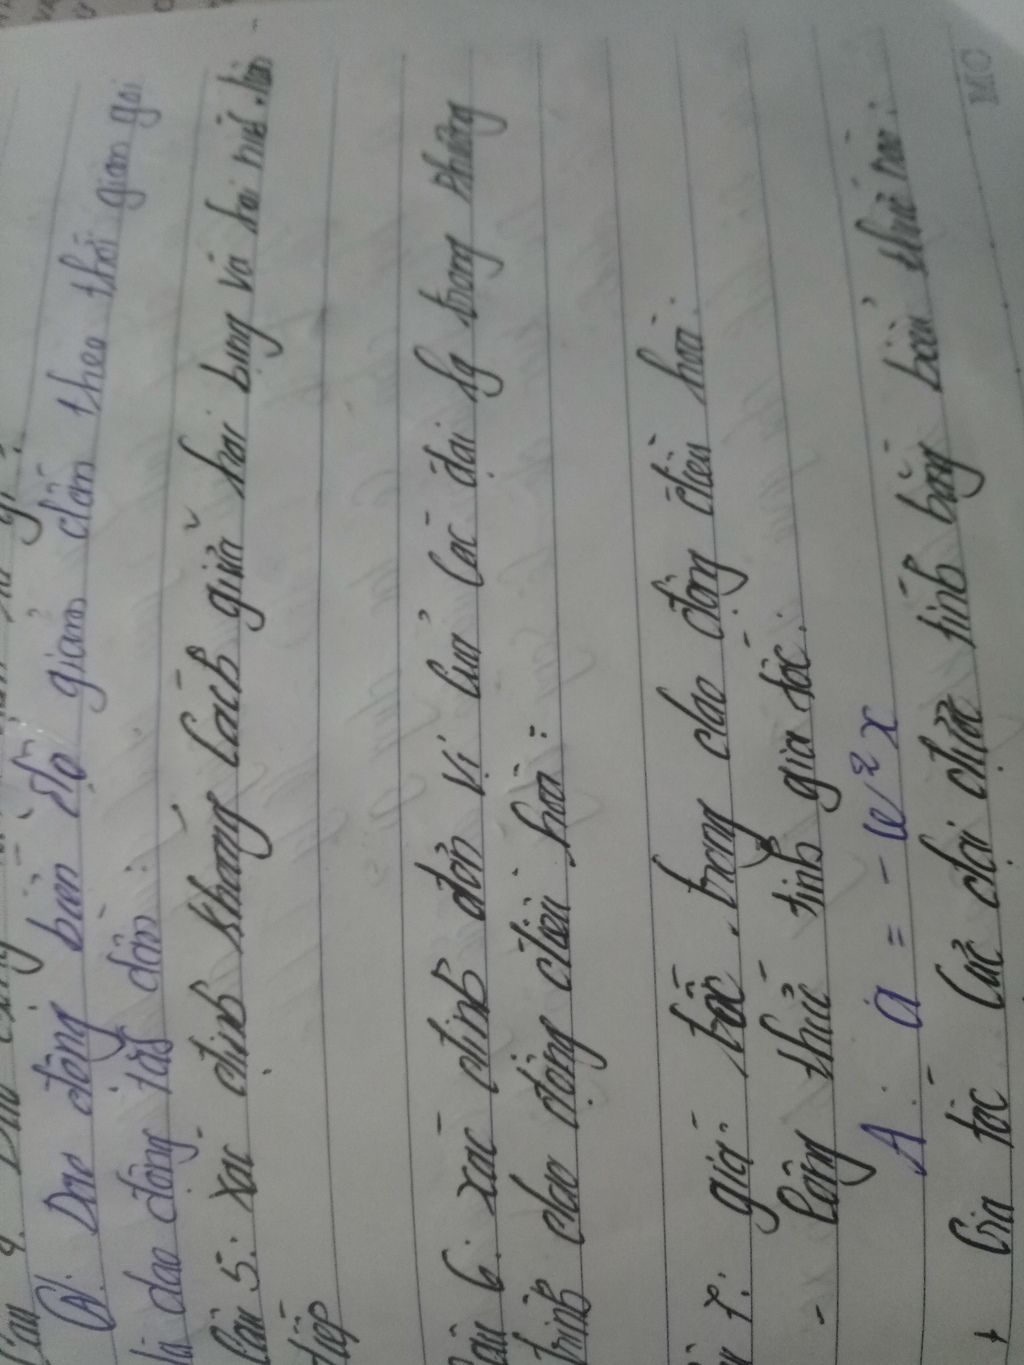 Câu 4:
A: Dao động bản độ giảm dần theo thời gian gọi
là dao động tắt dần:
Câu 5: xác định khoảng cách giữa hai bụng và hai nút liên
tiếp
Câu 6: xác định đơn vị của các đại lg trong phương
trình dao động điều hoà:
7: gia tốc trong dao động điều hoà.
- Công thức tính gia tốc:
A: a = - w²x
+ Gia tốc cực đại được tính bằng biểu thức nào:
MO